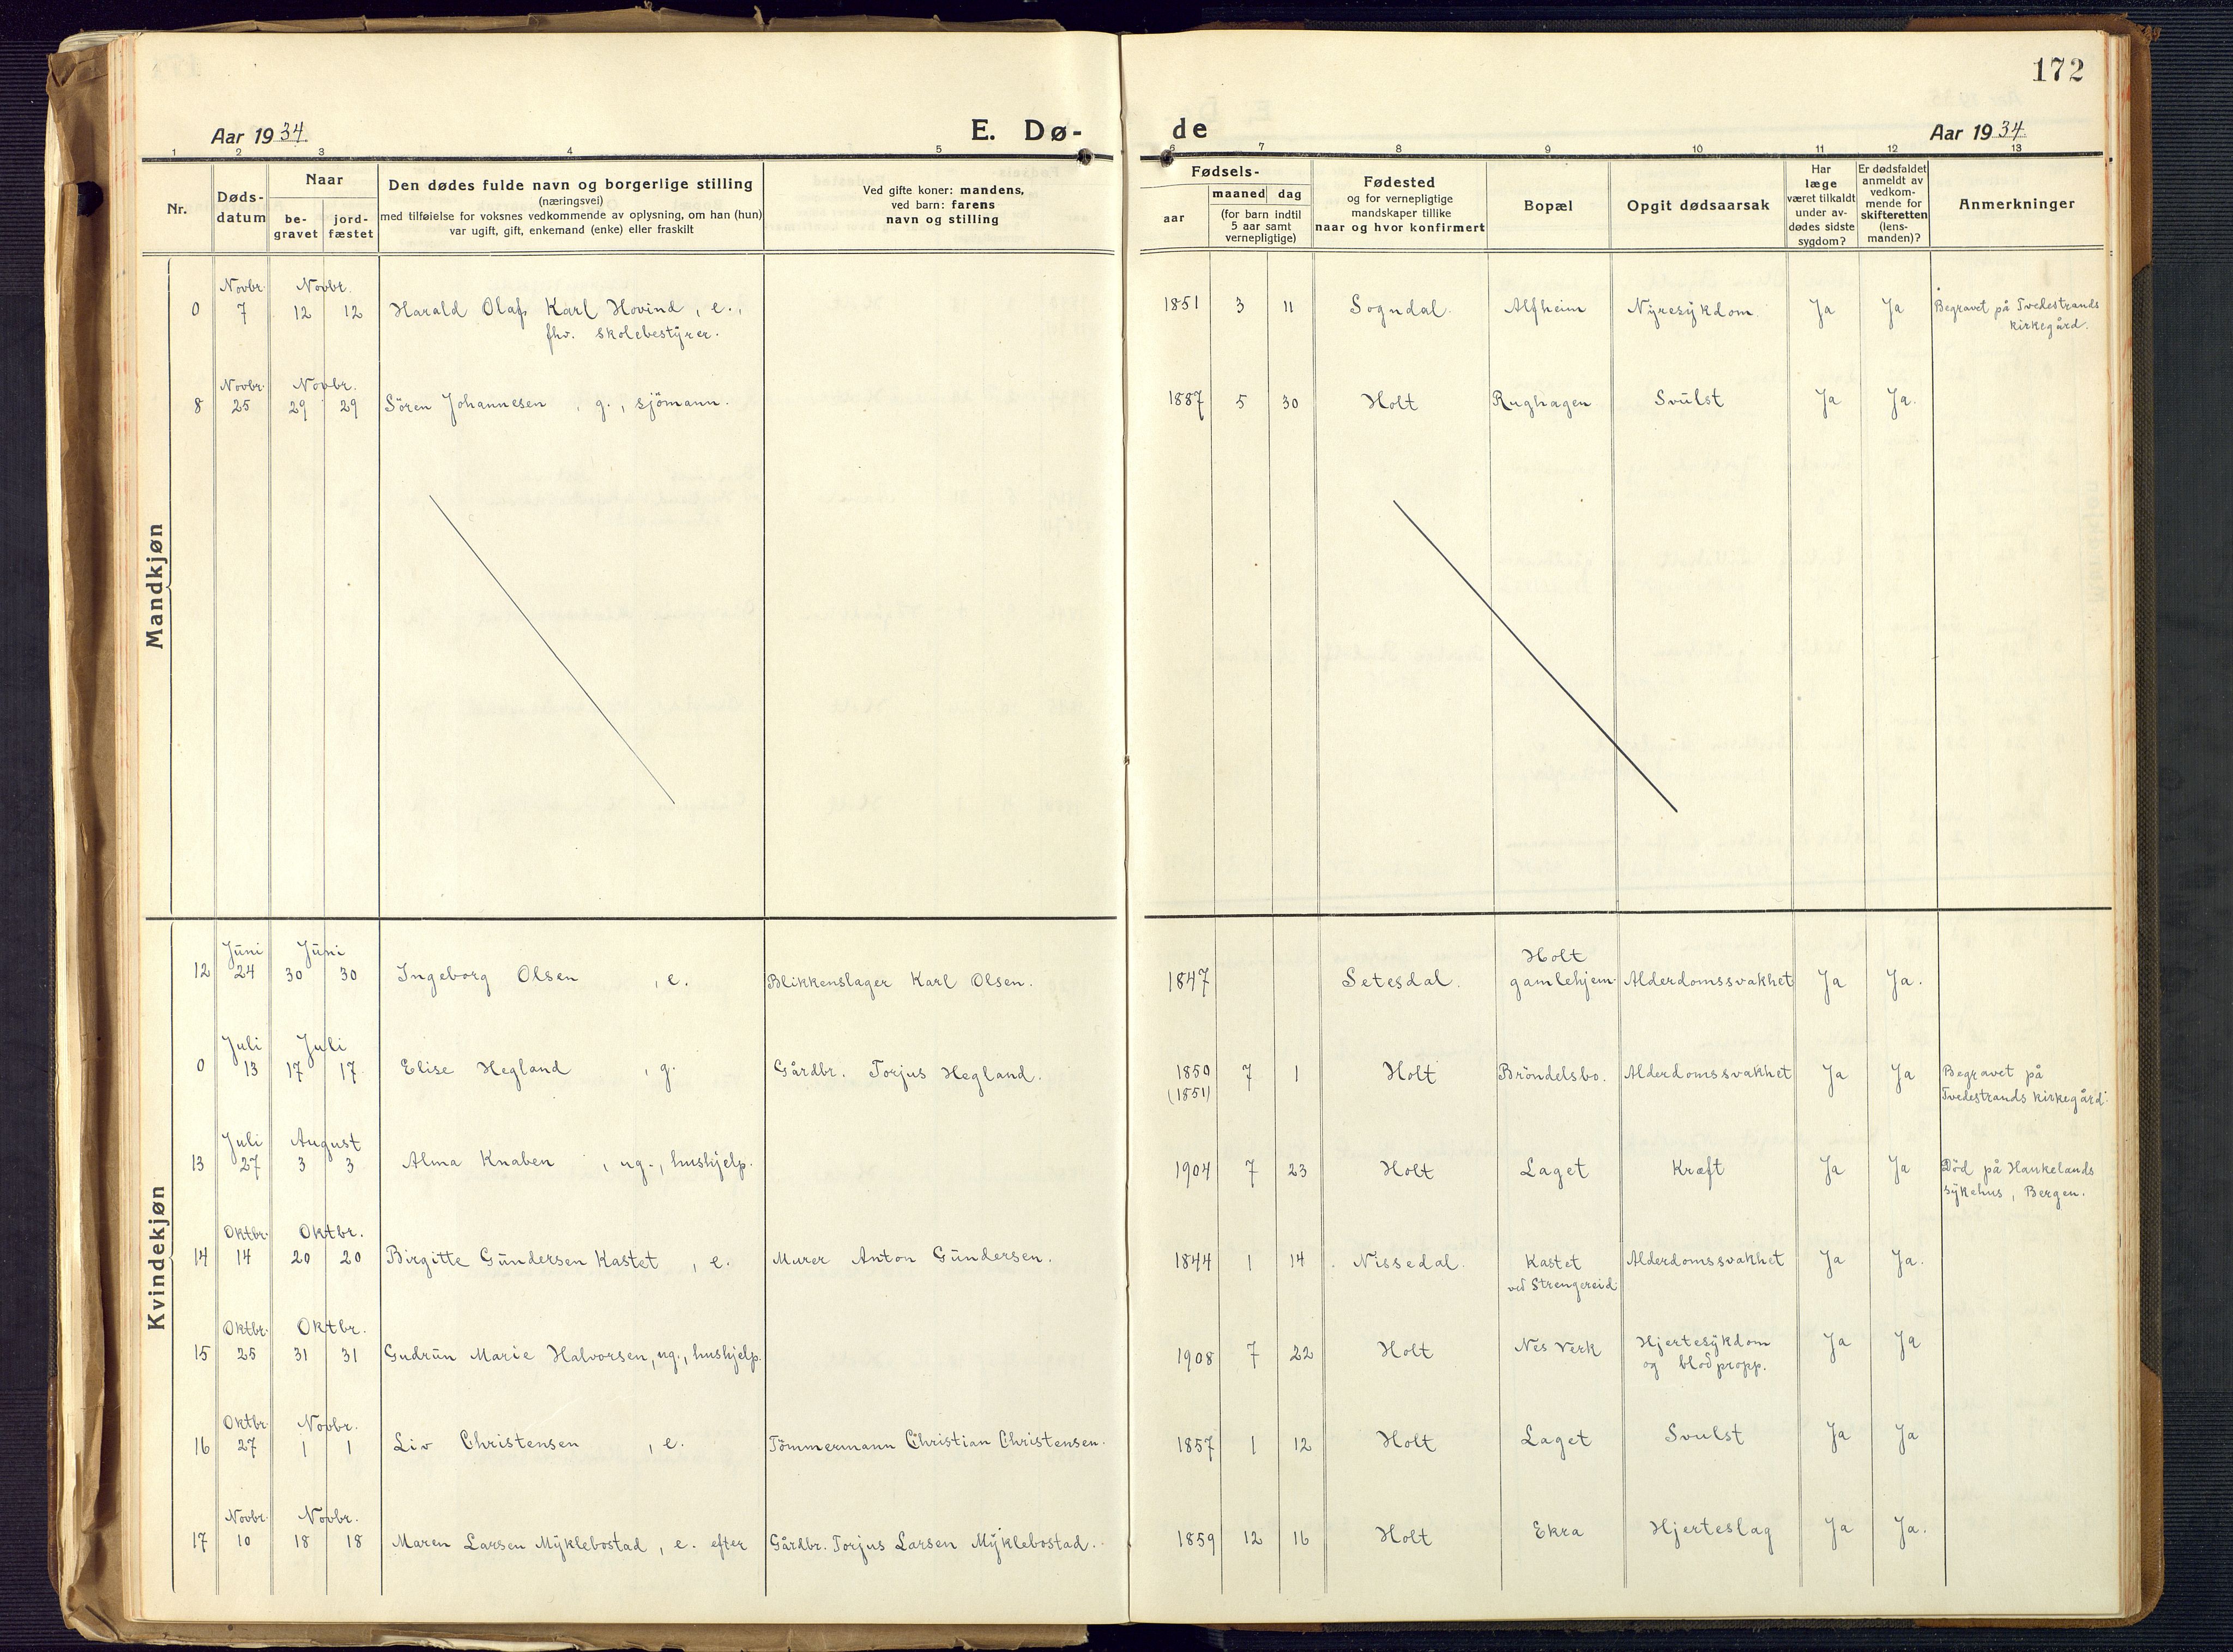 172
Aar 1934.
E. Dø-
de
Aar 1934.
1 2 3 4 5 6 7 8 9 10 11 12 13
Nr.
Døds-
datum
Naar
be-
gravet
jord-
fæstet
Den dødes fulde navn og borgerlige stilling
(næringsvei)
med tilføielse for voksnes vedkommende av oplysning, om han (hun)
var ugift, gift, enkemand (enke) eller fraskilt
Ved gifte koner: mandens,
ved barn: farens
navn og stilling
Fødsels-
aar
maaned dag
(for barn indtil
5 aar samt
vernepligtige)
Fødested
og for vernepligtige
mandskaper tillike
naar og hvor konfirmert
Bopæl
Opgit dødsaarsak
Har
læge
været tilkaldt
under av-
dødes sidste
sygdom?
Er dødsfaldet
anmeldt av
vedkom-
mende for
skifteretten
(lens-
manden)?
Anmerkninger
Mandkjøn
Novbr. Novbr.
0 7 12 12 Harald Olaf Karl Hovind, e., 1851 3 11 Sogndal. Alfheim Nyresykdom Ja Ja Begravet på Tvedestrands
fhv. skolebestyrer. kirkegård.
Novbr. Novbr.
8 25 29 29 Sören Johannesen, g., sjömann. 1887 5 30 Holt Rughagen Svulst Ja Ja.
Kvindekjøn
Juni Juni Holt
12 24 30 30 Ingeborg Olsen, e. Blikkenslager Karl Olsen. 1847 Setesdal. gamlehjem. Alderdomssvakhet Ja Ja.
Juli Juli
0 13 17 17 Elise Hegland, g. Gårdbr. Torjus Hegland. 1850 7 1 Holt Bröndelsbo. Alderdomssvakhet Ja Ja Begravet på
(1851) Tvedestrands kirkegård.
Juli August
13 27 3 3 Alma Knaben, ug., hushjelp. 1904 7 23 Holt Laget Kræft Ja Ja Död på Haukelands
sykehus, Bergen.
Oktbr. Oktbr.
14 14 20 20 Birgitte Gundersen Kastet, e. Murer Anton Gundersen. 1844 1 14 Nissedal. Kastet Alderdomssvakhet Ja Ja.
ved Strengereid
Oktbr. Oktbr.
15 25 31 31 Gudrun Marie Halvorsen, ug., hushjelp. 1908 7 22 Holt Nes Verk Hjertesykdom Ja Ja
og blodpropp.
Oktbr. Novbr.
16 27 1 1 Liv Christensen, e. Tömmermann Christian Christensen. 1857 1 12 Holt Laget Svulst Ja Ja
Novbr. Novbr.
17 10 18 18 Maren Larsen Myklebostad, e. efter Gårdbr. Torjus Larsen Myklebostad. 1859 12 16 Holt Ekra Hjerteslag Ja Ja.